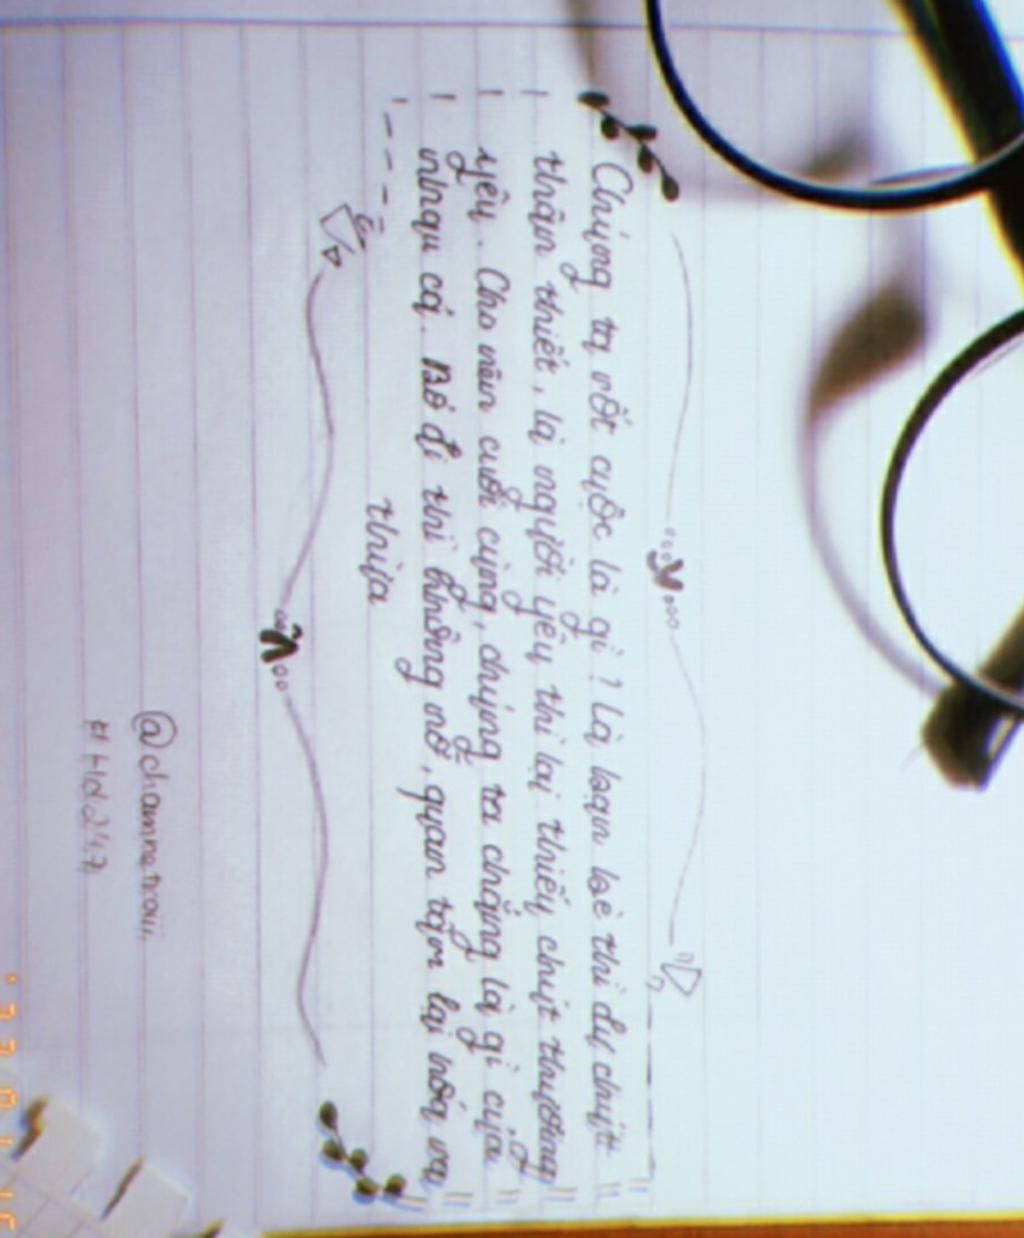 Chúng ta rốt cuộc là gì? Là bạn bè thì dư chút
thân thiết, là người yêu thì lại thiếu chút thương
yêu. Cho nên cuối cùng, chúng ta chẳng là gì của
nhau cả. Bỏ đi thì không nỡ, quan tâm lại hóa ra
thừa
@chamne.troiii
#Hd247